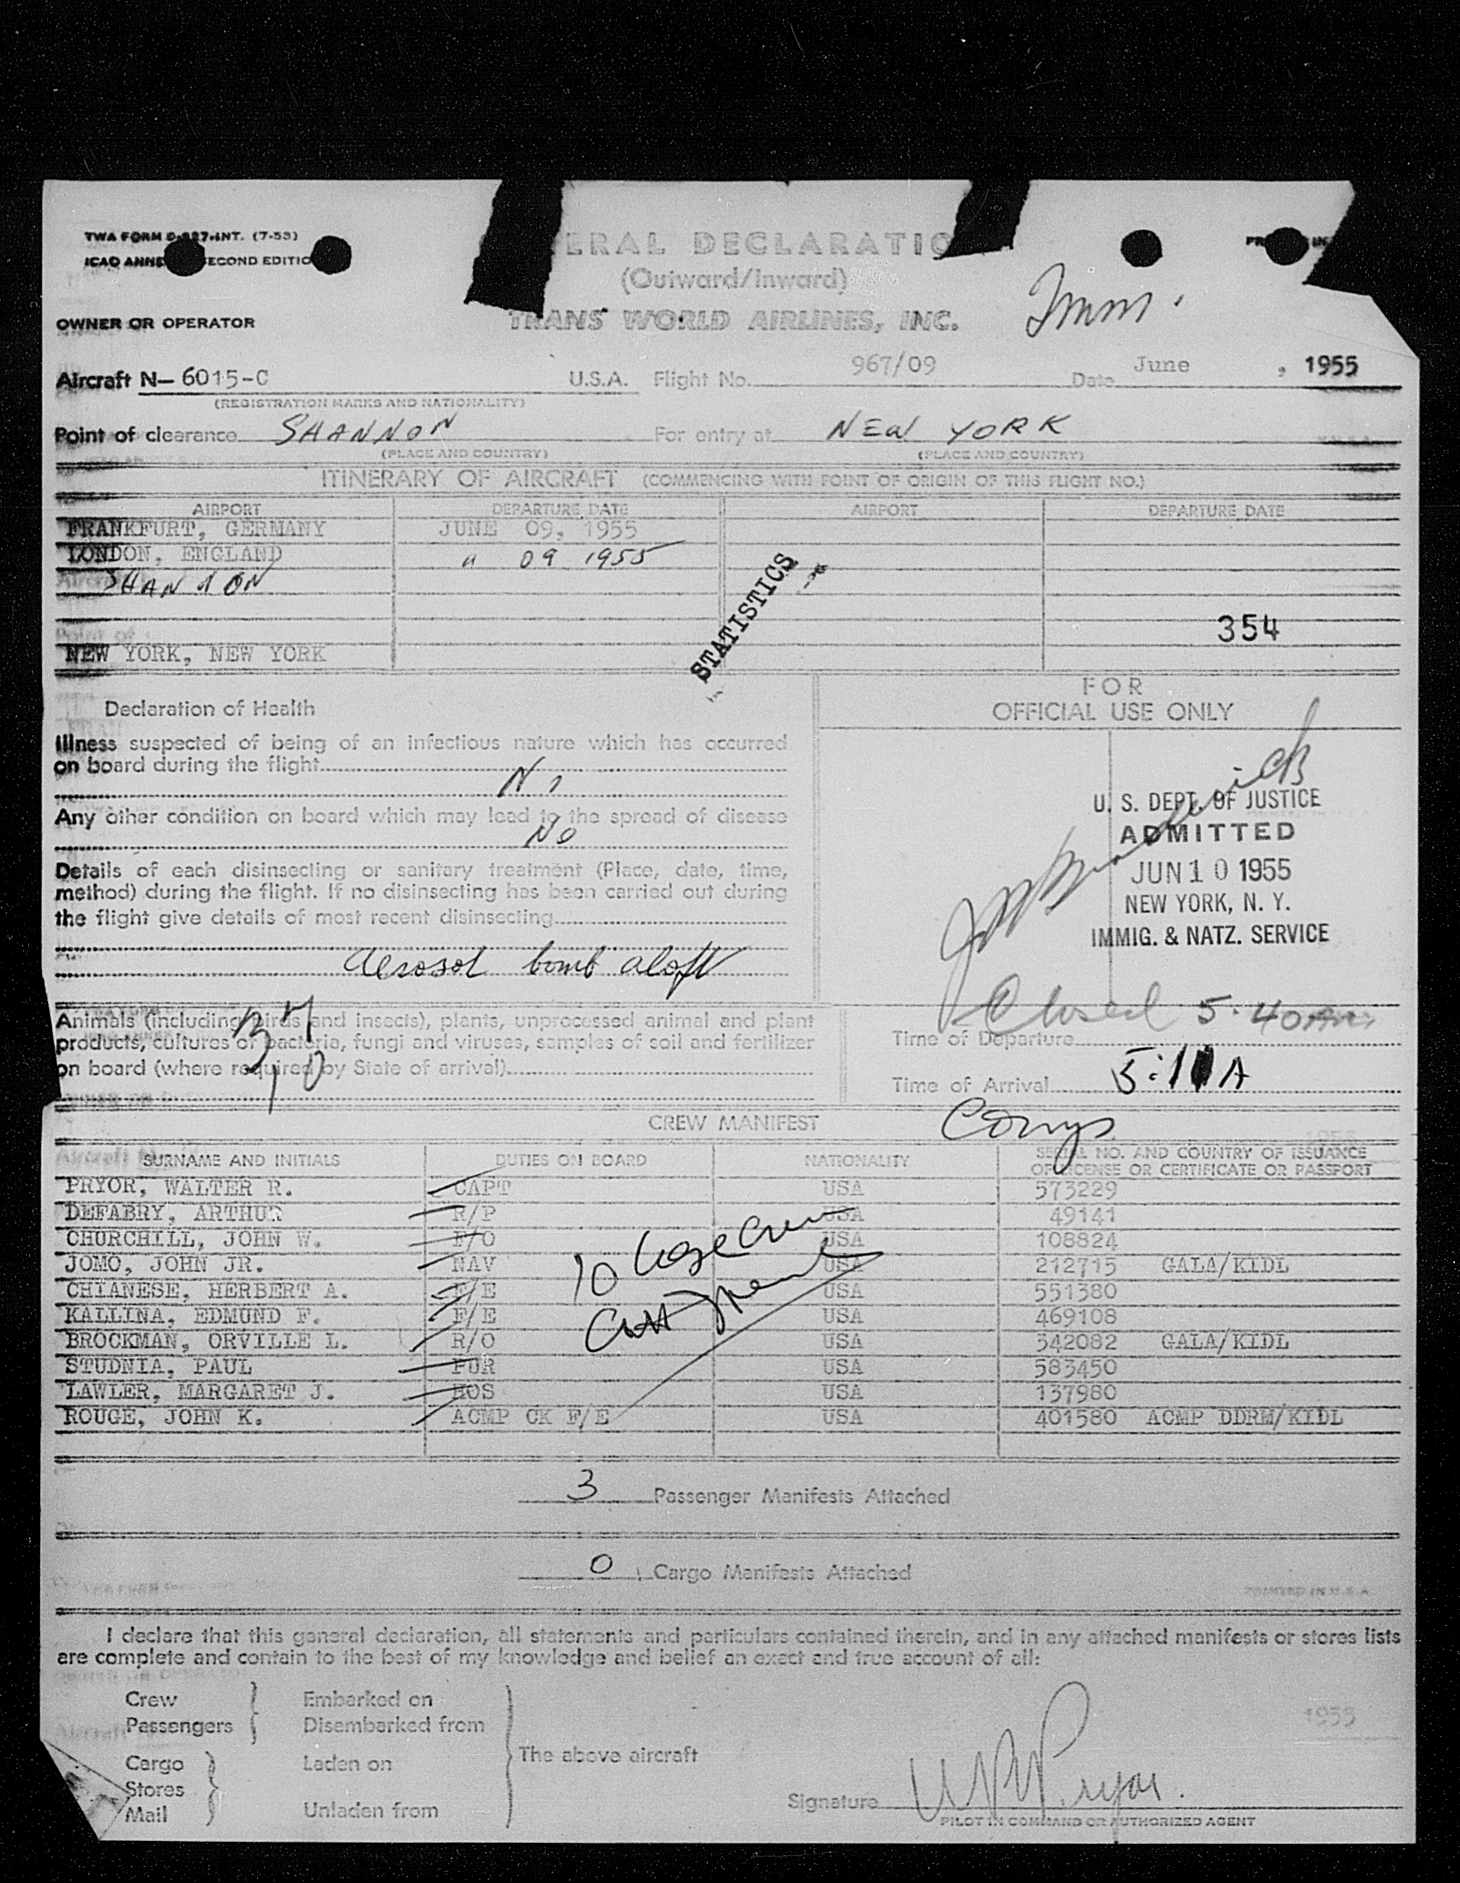 TWA FORM INT. (7-53)
ICAO SECOND EDITIO
ERAL DECLARATIO
(Outward/Inward)
Imm.
OWNER OR OPERATOR TRANS WORLD AIRLINES, INC.
Aircraft N- 6015-C U.S.A. Flight No. 967/09 Date June , 1955
(REGISTRATION MARKS AND NATIONALITY)
Point of clearance SHANNON For entry at NEW YORK
(PLACE AND COUNTRY) (PLACE AND COUNTRY)
ITINERARY OF AIRCRAFT (COMMENCING WITH POINT OF ORIGIN OF THIS FLIGHT NO.)
AIRPORT DEPARTURE DATE AIRPORT DEPARTURE DATE
FRANKFURT, GERMANY JUNE 09, 1955
LONDON, ENGLAND " 09 1955
SHANNON
STATISTICS
354
NEW YORK, NEW YORK
Declaration of Health
FOR
OFFICIAL USE ONLY
Illness suspected of being of an infectious nature which has occurred
on board during the flight
No
Any other condition on board which may lead to the spread of disease
No
Details of each disinsecting or sanitary treatment (Place, date, time,
method) during the flight. If no disinsecting has been carried out during
the flight give details of most recent disinsecting
Aerosol bomb aloft
U. S. DEPT. OF JUSTICE
ADMITTED
JUN 10 1955
NEW YORK, N. Y.
IMMIG. & NATZ. SERVICE
Closed 5:40 AM
Animals (including birds and insects), plants, unprocessed animal and plant
products, cultures of bacteria, fungi and viruses, samples of soil and fertilizer
on board (where required by State of arrival)
Time of Departure
Time of Arrival 5:11 A
CREW MANIFEST
SURNAME AND INITIALS DUTIES ON BOARD NATIONALITY SERIAL NO. AND COUNTRY OF ISSUANCE
OF LICENSE OR CERTIFICATE OR PASSPORT
PRYOR, WALTER R. CAPT USA 573229
DEFABRY, ARTHUR R/P USA 49141
CHURCHILL, JOHN W. F/O USA 108824
JOMO, JOHN JR. NAV USA 212715 GALA/KIDL
CHIANESE, HERBERT A. F/E USA 551380
KALLINA, EDMUND F. F/E USA 469108
BROCKMAN, ORVILLE L. R/O USA 342082 GALA/KIDL
STUDNIA, PAUL PUR USA 583450
LAWLER, MARGARET J. HOS USA 137980
ROUGE, JOHN K. ACMP CK F/E USA 401580 ACMP DDRM/KIDL
3 Passenger Manifests Attached
0 Cargo Manifests Attached
PRINTED IN U.S.A.
I declare that this general declaration, all statements and particulars contained therein, and in any attached manifests or stores lists
are complete and contain to the best of my knowledge and belief an exact and true account of all:
Crew Embarked on
Passengers Disembarked from
The above aircraft
Cargo Laden on
Stores
Mail Unladen from
1955
Signature W R Pryor
PILOT IN COMMAND OR AUTHORIZED AGENT